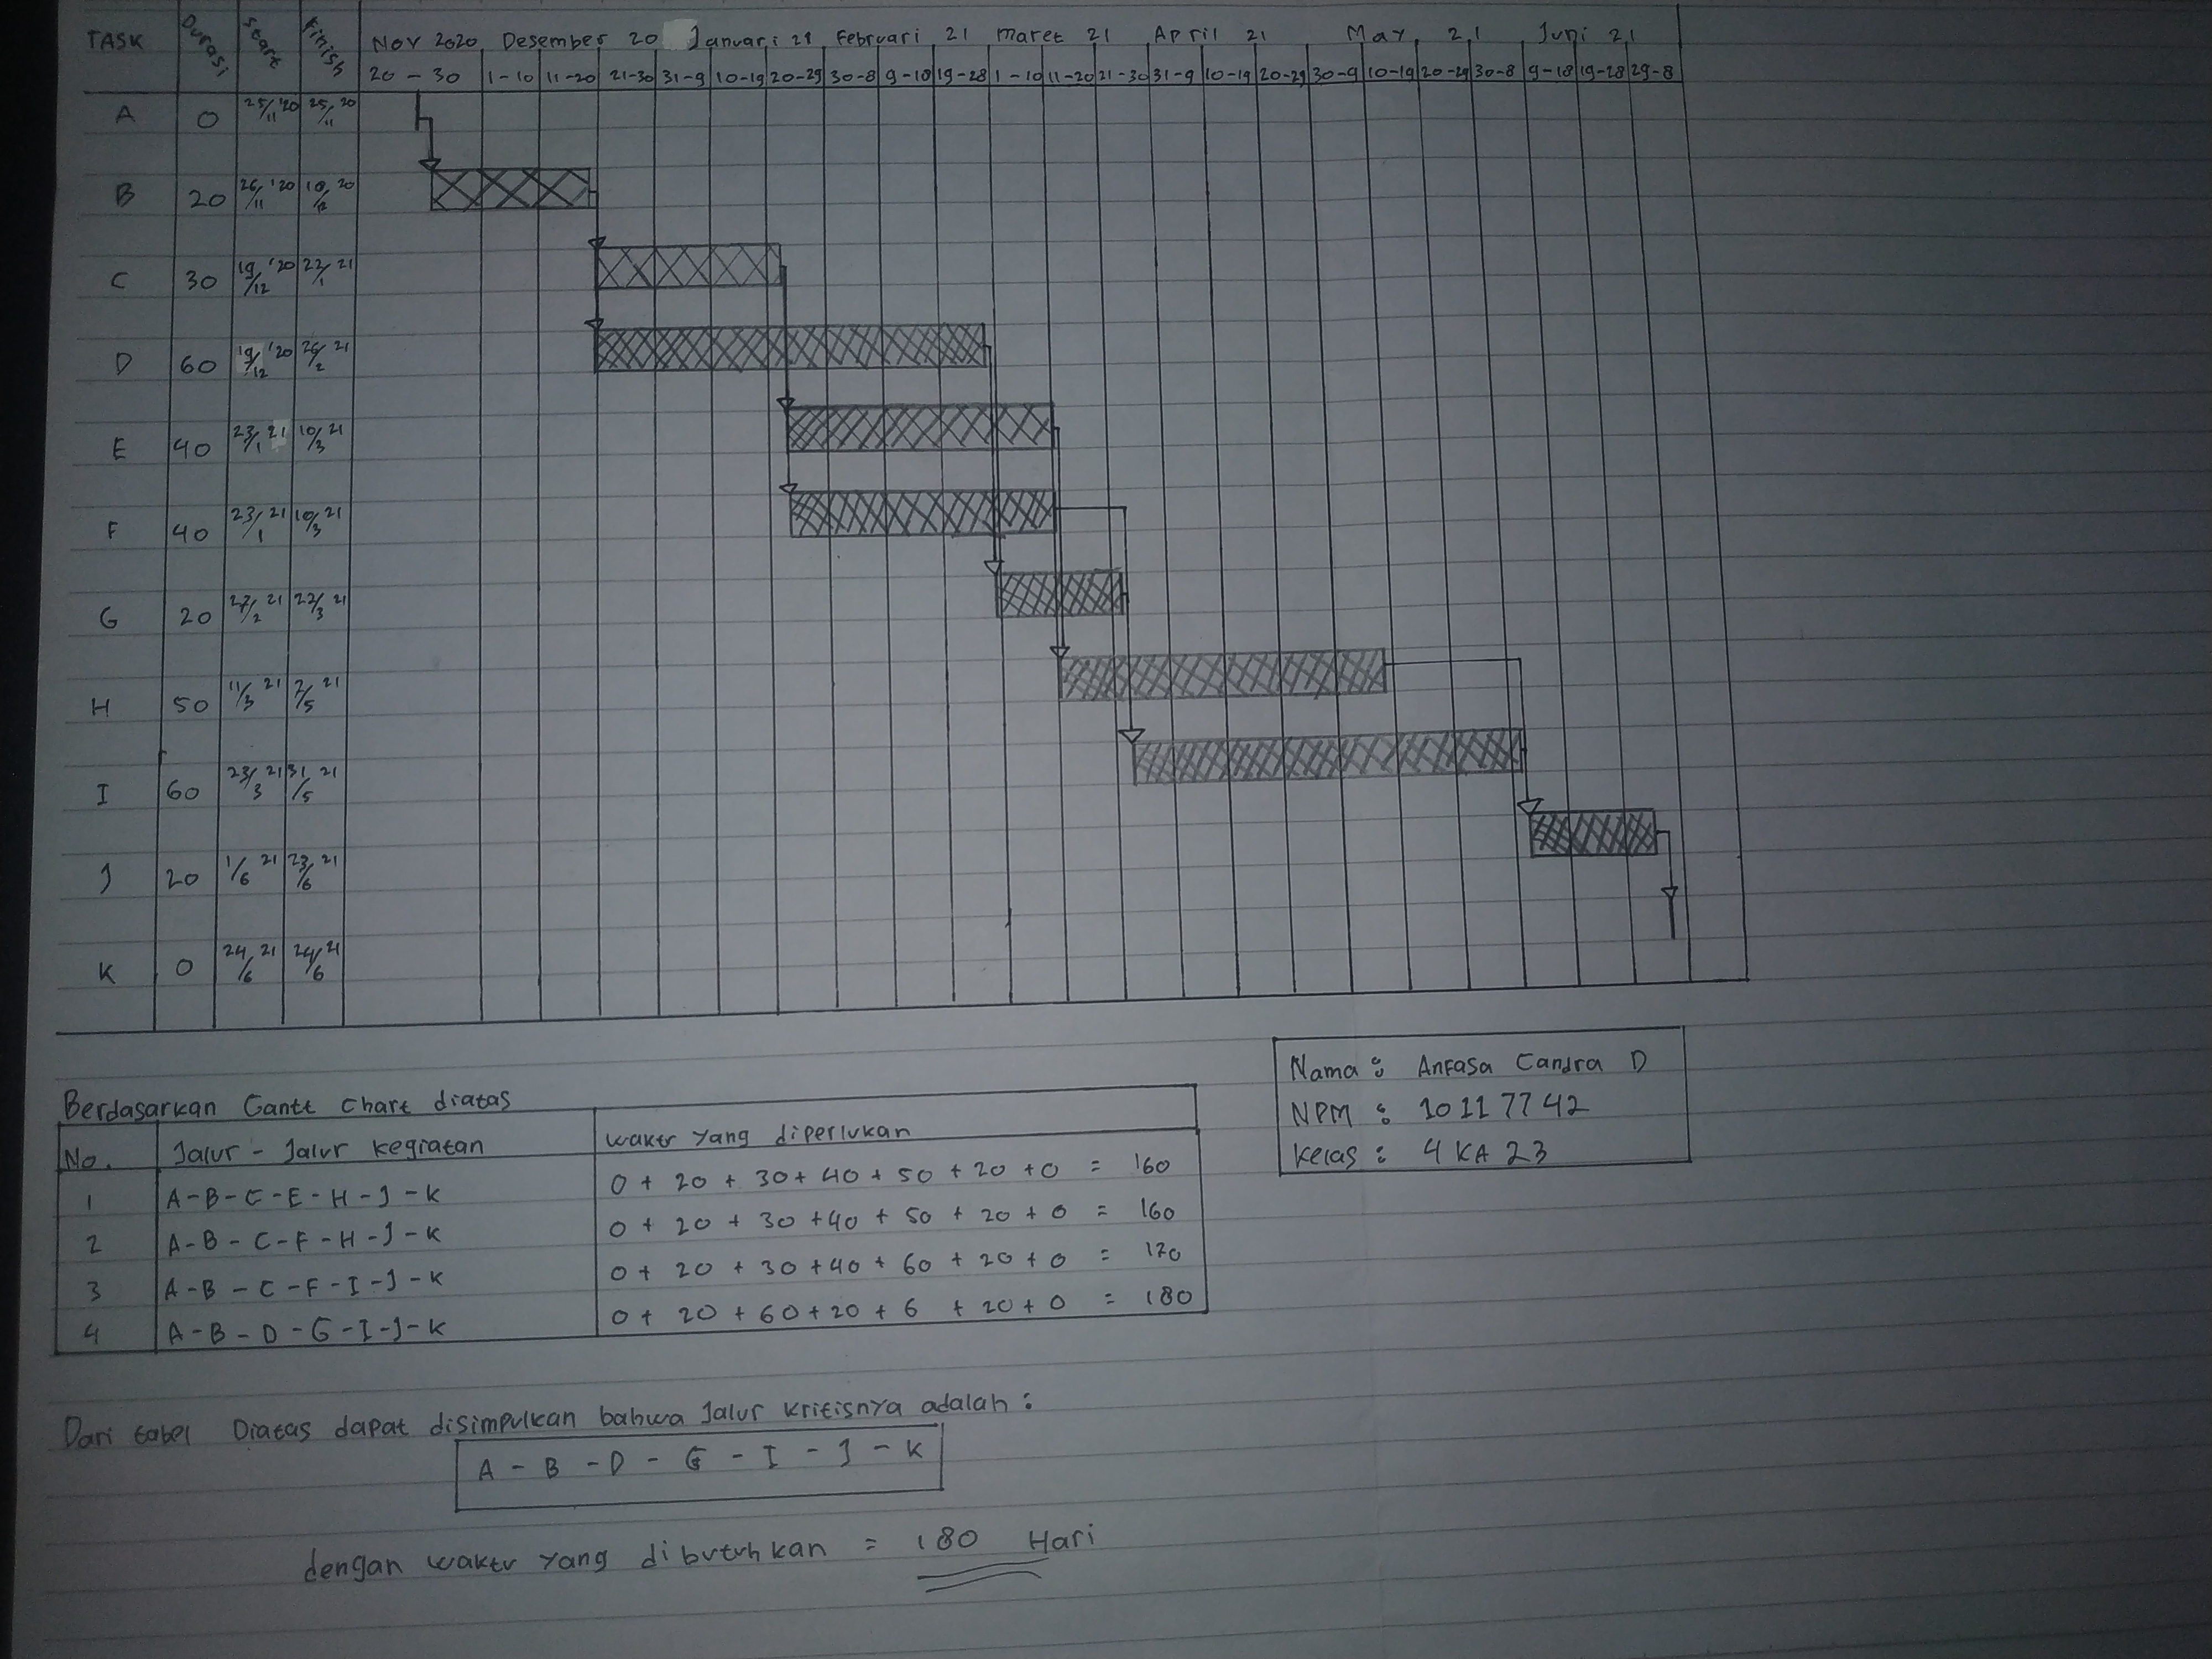 TASK Durasi Start Finish Nov 2020 Desember 20 Januari 21 Februari 21 Maret 21 April 21 May 21 Juni 21
20 - 30 1-10 11-20 21-30 31-9 10-19 20-29 30-8 9-18 19-28 1-10 11-20 21-30 31-9 10-19 20-29 30-9 10-19 20-29 30-8 9-18 19-28 29-8
A 0 25/11 '20 25/11 20
B 20 26/11 '20 18/12 20
C 30 19/12 '20 22/1 21
D 60 19/12 '20 26/2 21
E 40 23/1 21 10/3 21
F 40 23/1 21 10/3 21
G 20 27/2 21 22/3 21
H 50 11/3 21 7/5 21
I 60 23/3 21 31/5 21
J 20 1/6 21 23/6 21
K 0 24/6 21 24/6 21
Nama : Anfasa Candra D
NPM : 10117742
Kelas : 4KA23
Berdasarkan Gantt Chart diatas
No. Jalur - Jalur kegiatan waktu yang diperlukan
1 A-B-C-E-H-J-K 0 + 20 + 30 + 40 + 50 + 20 + 0 = 160
2 A-B-C-F-H-J-K 0 + 20 + 30 + 40 + 50 + 20 + 0 = 160
3 A-B-C-F-I-J-K 0 + 20 + 30 + 40 + 60 + 20 + 0 = 170
4 A-B-D-G-I-J-K 0 + 20 + 60 + 20 + 6 + 20 + 0 = 180
Dari tabel Diatas dapat disimpulkan bahwa Jalur kritisnya adalah :
A - B - D - G - I - J - K
dengan waktu yang dibutuhkan = 180 Hari